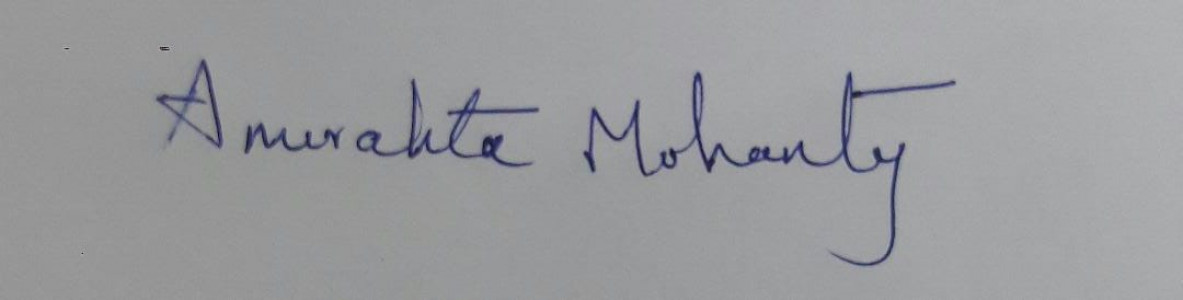 Anurakta Mohanty